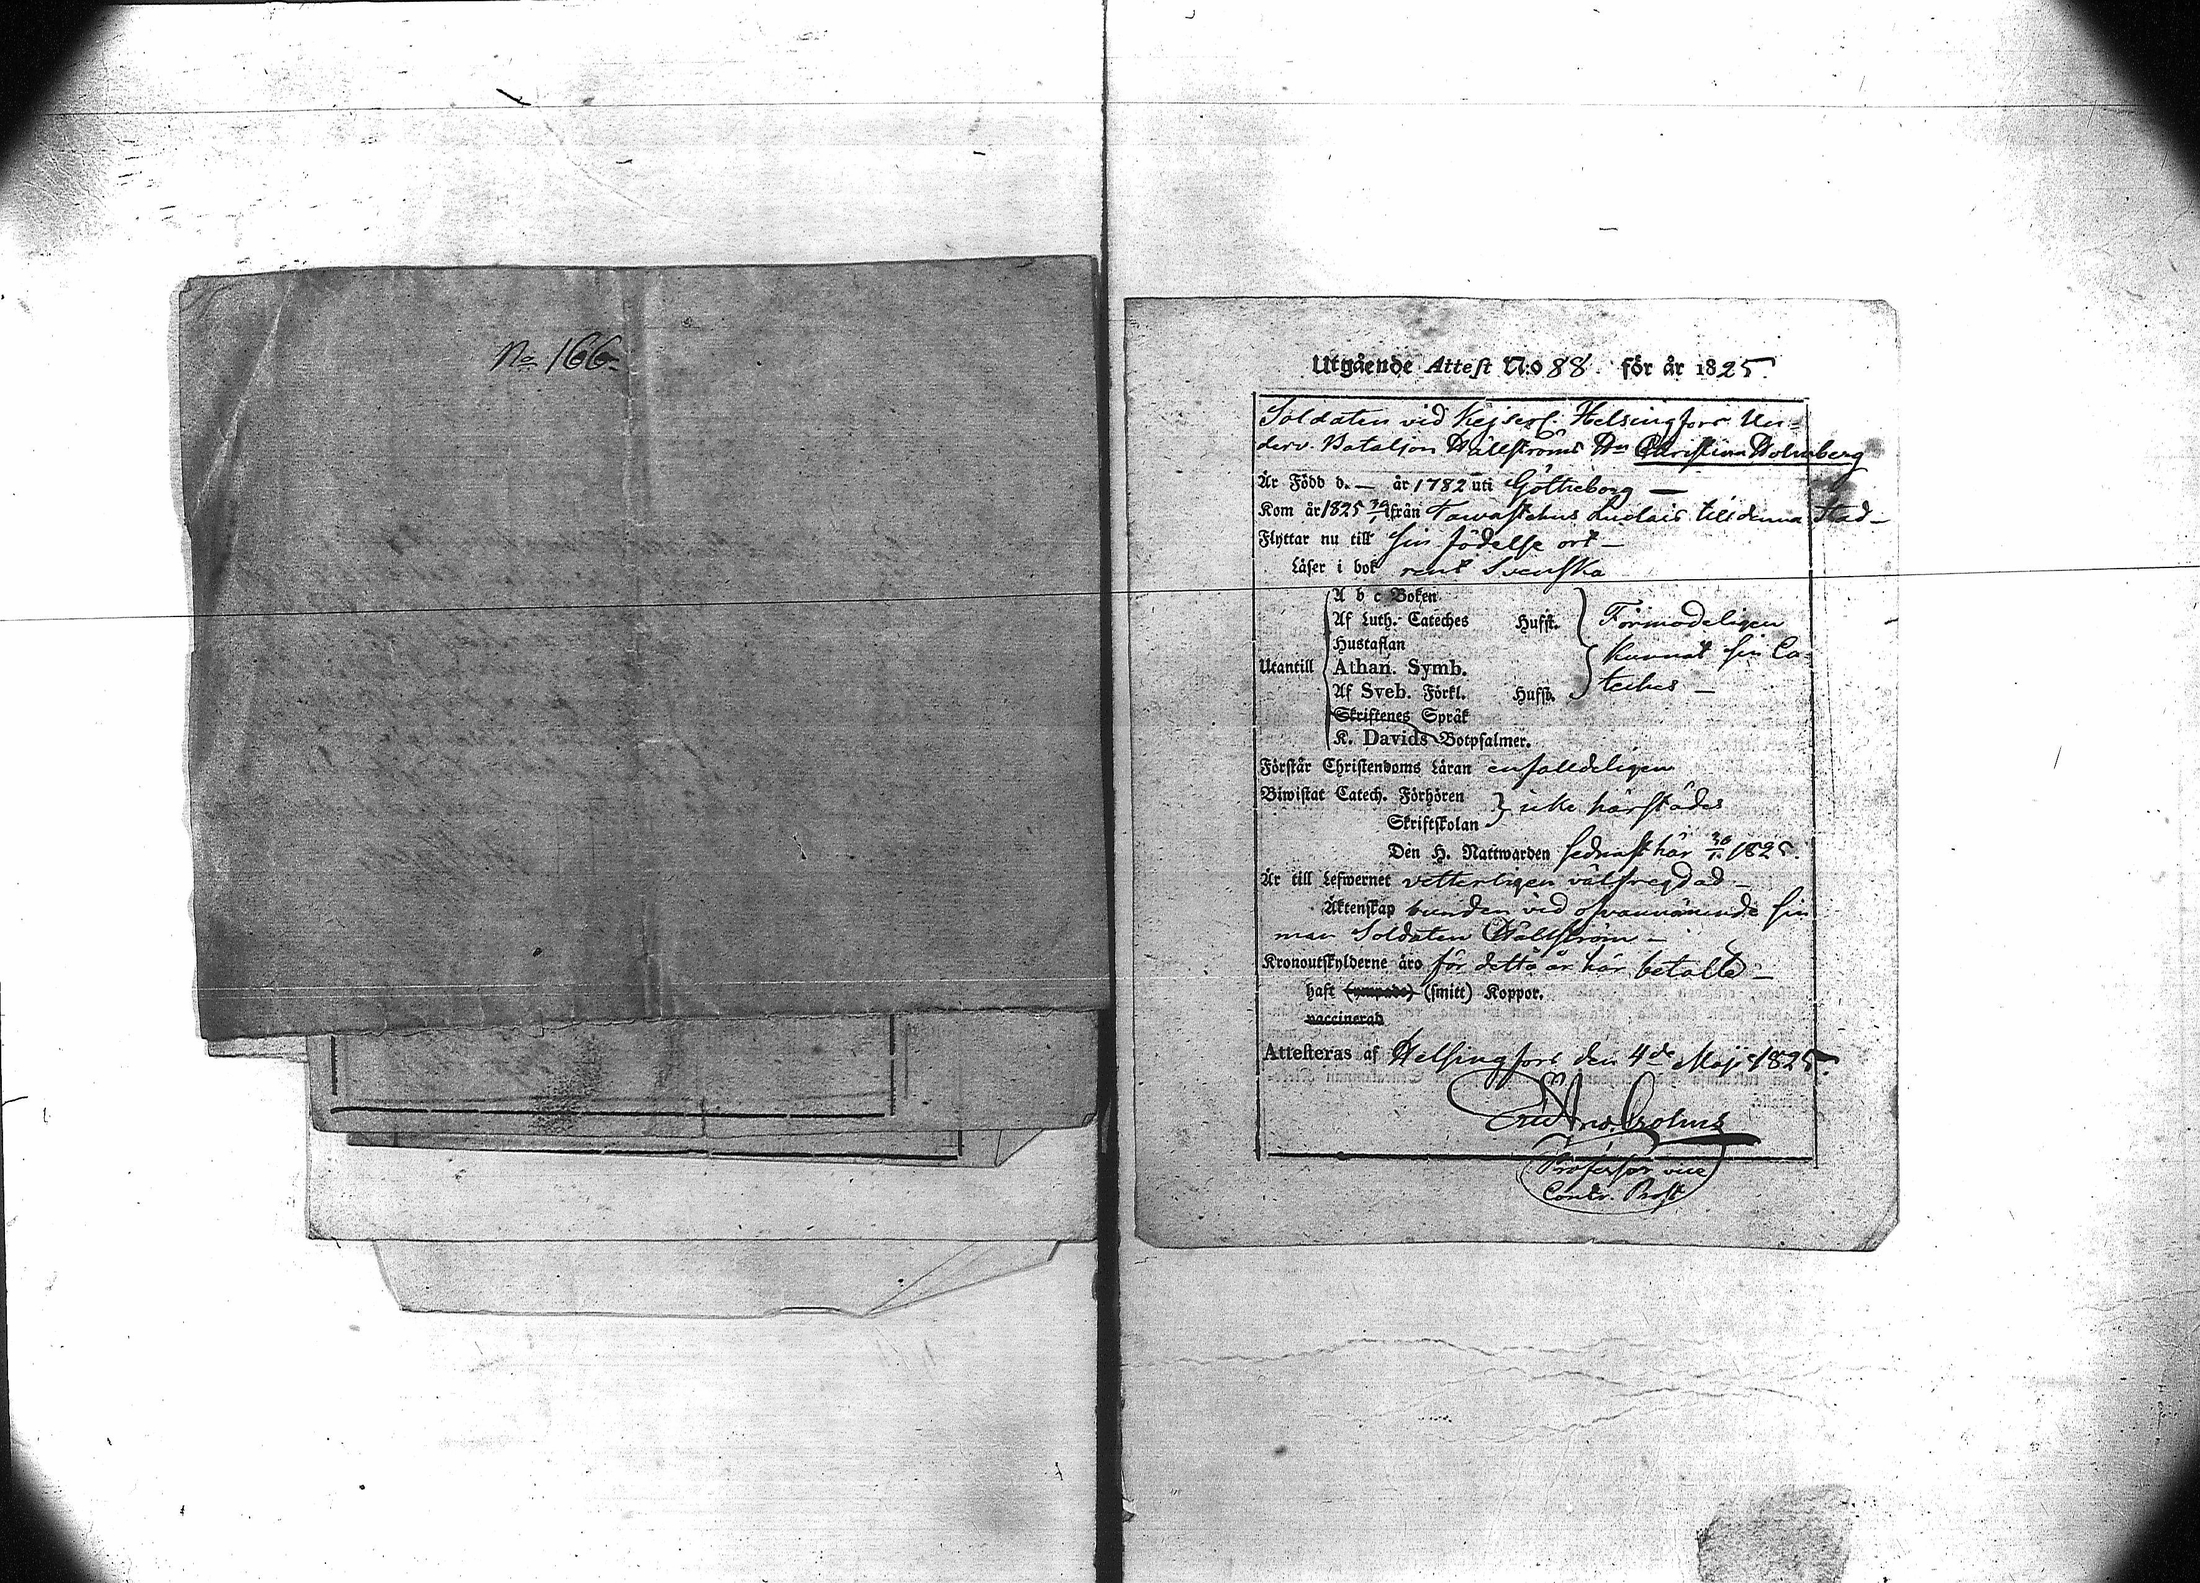 No 166.
Utgående Attest N:o 88. för år 1825.
Soldaten vid Kejserl. Helsingfors Un-
derv. Bataljon Hällströms Hu Christina Holmberg
Är Född d. — år 1782 uti Götheborg —
Kom år 1825 30/1 från Tawastehus Landis till denna Stad —
Flyttar nu till sin födelse ort —
Läser i bok rent Svenska
A b c Boken
Af Luth. Cateches Hufst. Förmodeligen
Hustaflan kunnat sin Ca-
Utantill Athan. Symb.
Af Sveb. Förkl. Hufst. teches —
Skriftenes Språk
K. Davids Botpsalmer.
Förstår Christendoms Läran enfalldeligen
Biwistat Catech. Förhören icke härstädes
Skriftskolan
Den H. Nattwarden sednast här 30/1 1825.
Är till Lefwernet vetterligen välfregdad —
Äktenskap bunden vid ofvannämnde sin
man Soldaten Hällström —
Kronoutskylderne äro för detta år här betalte —
haft (ympade) (smitt) Koppor.
vaccinerad
Attesteras af Helsingfors den 4de Maji 1825.
Professor vice
Contr. Prost